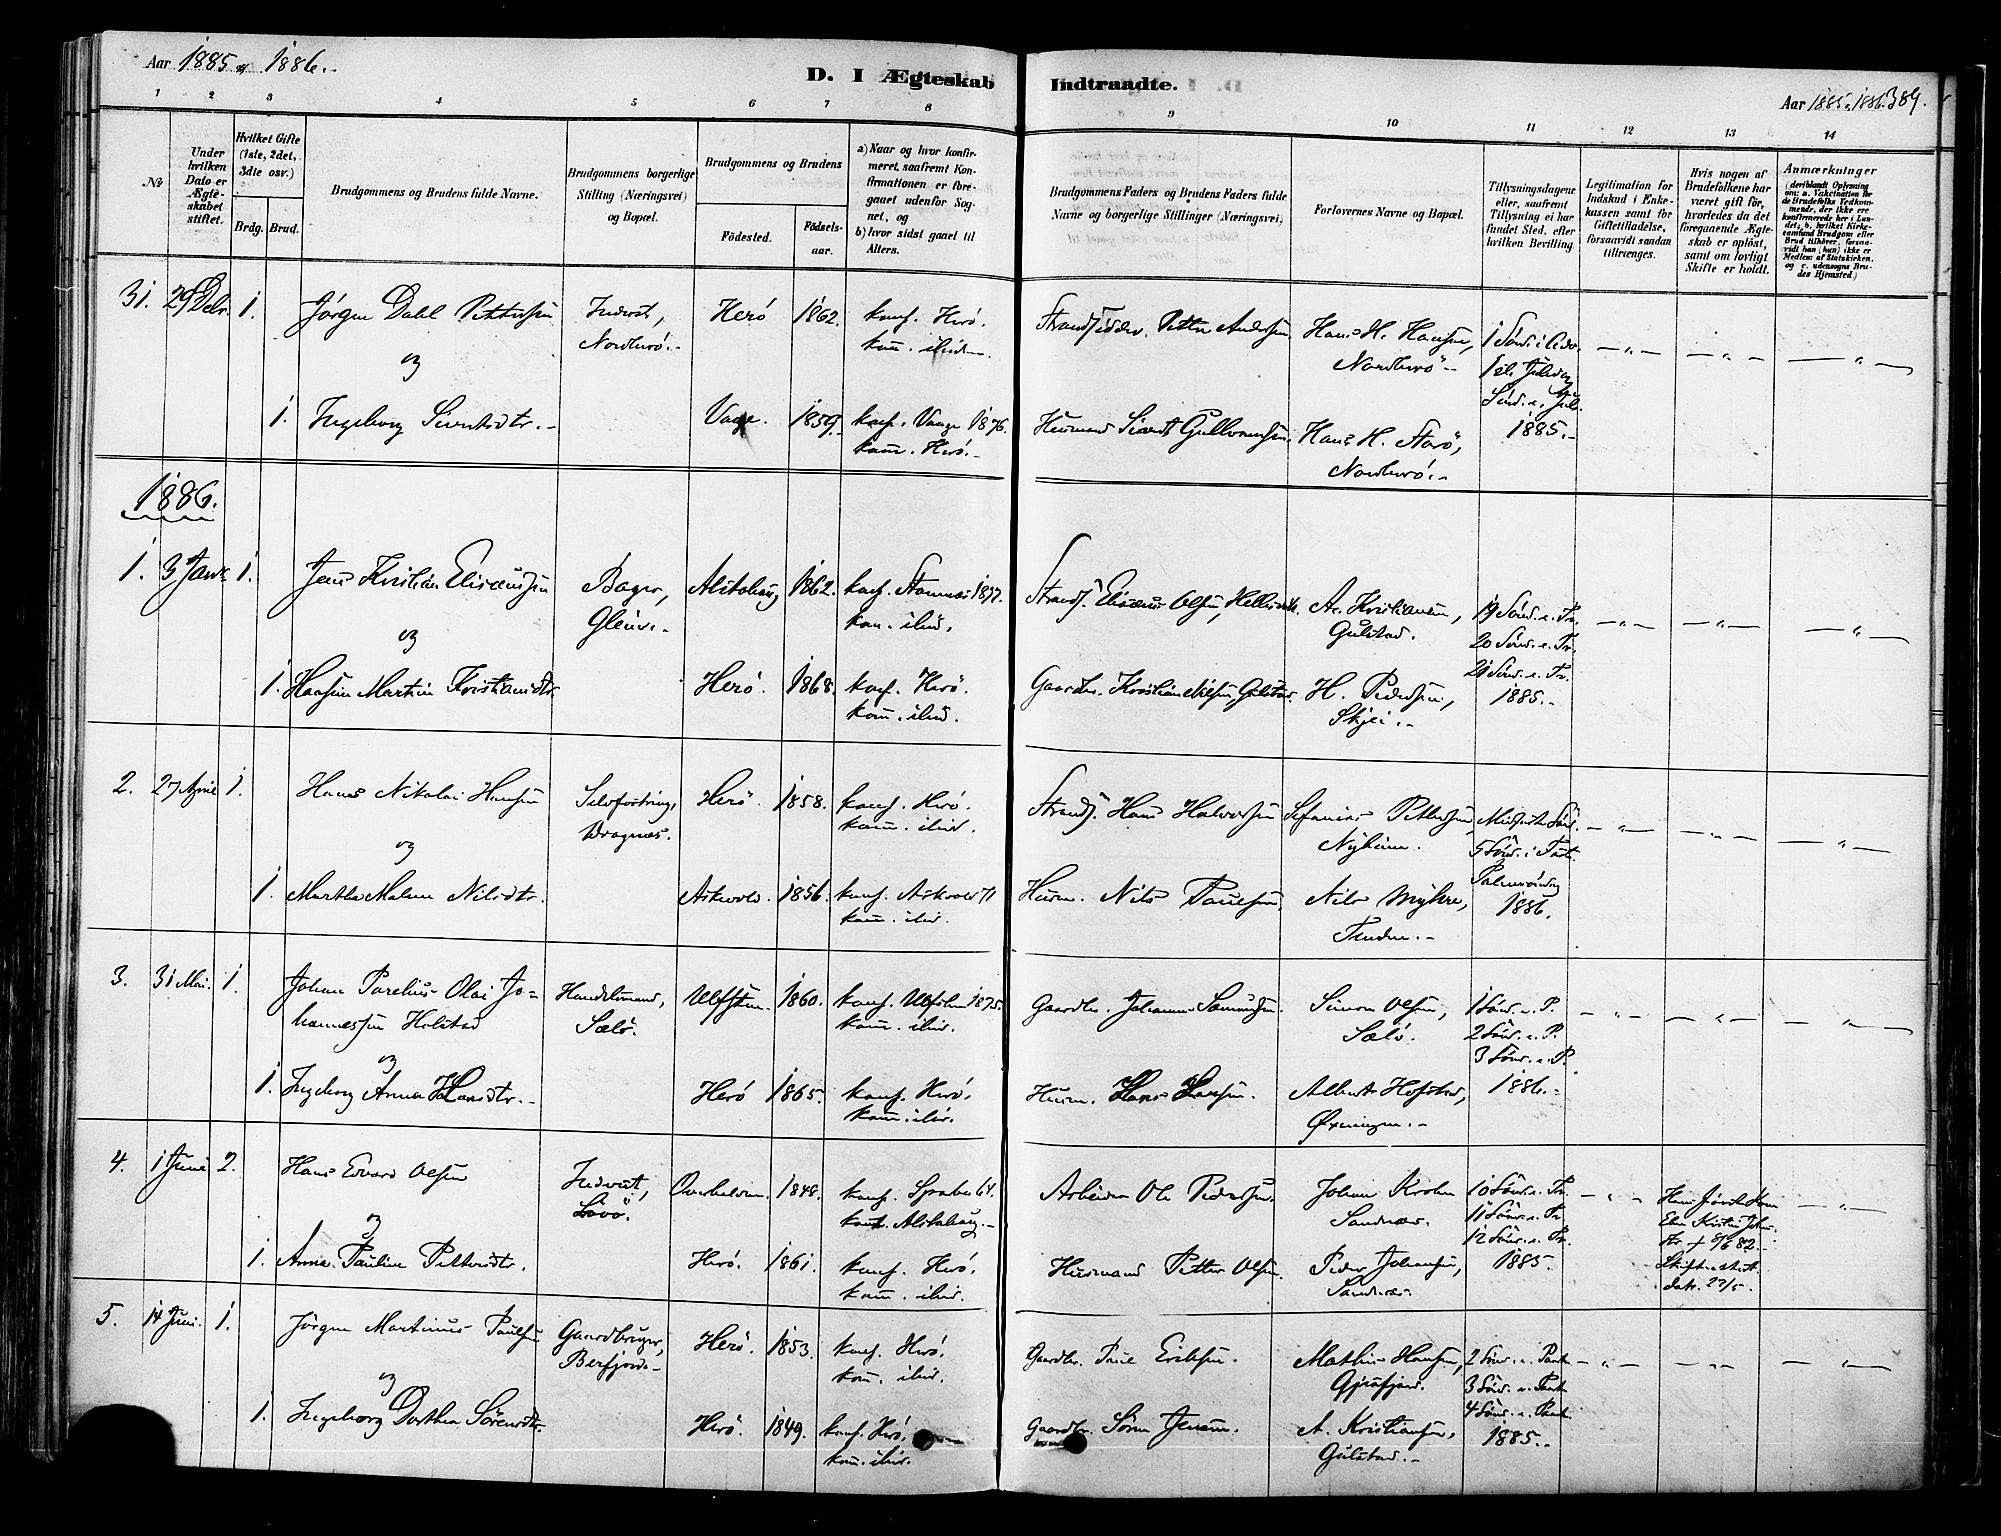 Aar 1885 og 1886.
D. I Ægteskab Indtraadte.
Aar 1885, 1886. 389.
1 2 3 4 5 6 7 8 9 10 11 12 13 14
No
Under hvilken Dato er Ægteskabet stiftet.
Hvilket Gifte (1ste, 2det, 3die osv.)
Brdg. Brud.
Brudgommens og Brudens fulde Navne.
Brudgommens borgerlige Stilling (Næringsvei) og Bopæl.
Brudgommens og Brudens
Fødested. Fødselsaar.
a) Naar og hvor konfirmeret, saafremt Konfirmationen er foregaaet udenfor Sognet, og
b) hvor sidst gaaet til Alters.
Brudgommens Faders og Brudens Faders fulde Navne og borgerlige Stillinger (Næringsvei).
Forlovernes Navne og Bopæl.
Tillysningsdagene eller, saafremt Tillysning ei har fundet Sted, efter hvilken Bevilling.
Legitimation for Indskud i Enkekassen samt for Giftetilladelse, forsaavidt saadan tiltrænges.
Hvis nogen af Brudefolkene har været gift før, hvorledes da det foregaaende Ægteskab er opløst, samt om lovligt Skifte er holdt.
Anmærkninger
31. 29 Debr. 1. Jørgen Dahl Pettersen Inderst, Nordherø. Herø 1862. konf. Herø. kom. ibid. Strandsidder Petter Andersen Hans H. Hansen, Nordherø 1 Sønd. i Adv.
og
1. Ingeborg Sivertsdtr. Vage. 1859. konf. Vaage 1876. kom. Herø. Husmand Sivert Gulbrandsen Hans H. Starø, Nordherø. 1885.
1886.
1. 3 Janr. 1. Jens Kristian Elisæussen Bager, Glein. Alstahaug 1862. konf. Stamnes 1877. kom. ibid. Strands. Elisæus Olsen, A. Kristiansen, Gulstad. 19 Sønd. e. Tr. 20 Sønd. e. Tr. 21 Sønd. e. Tr.
og
1. Martin Kristiansdtr. Herø. 1868. konf. Herø. kom. ibid. Gaardbr. Kristian Nilsen, Gulstad. H. Pedersen, Skjei. 1885.
2. 27 April 1. Hans Nikolai Hansen Selvforsring, Dragnæs. Herø. 1858. konf. Herø. kom. ibid. Strands. Hans Halvorsen Stefanus Pettersen, Nyheim. Midfaste Sønd. 5 Sønd. i Faste
og
1. Martha Malene Nilsdtr. Askvold. 1856. konf. Askvold 71 kom. ibid. Husm. Nils Paulsen, Nils Myhre, Tenden. Palmesøndag 1886.
3. 31 Mai. 1. Johan Parelius Olai Johannessen Holstad Handelsmand, Sælø. Ulfsten 1860. konf. 1875. kom. ibid. Gaardbr. Johannes Samuelsen. Simon Olsen, Sælø. 1 Sønd. e. P. 2 Sønd. e. P. 3 Sønd. e. P.
og
1. Ingeborg Anna Hansdtr. Herø 1865. konf. Herø. kom. ibid. Husm. Hans Hansen. Albert Hofstad, Øxningen. 1886.
4. 1 Juni 2. Hans Edvard Olsen Inderst, Løvø. Overhalven. 1848. konf. 64. kom. Alstahaug. Arbeider Ole Pedersen. Johan Krohn Sandnæs. 10 Sønd. e. Tr. 11 Sønd. e. Tr. 12 Sønd. e. Tr. Elen Kristine Johns. dtr. † 8/6 82.
og
1. Anne Pauline Pettersdtr. Herø. 1861. konf. Herø. kom. ibid. Husmand Petter Olsen. Peder Johansen, Sandnæs. 1885. Skifteattest dat. 22/5.
5. 14 Juni. 1. Jørgen Martinus Paulsen Gaardbruger, Berfjord. Herø. 1853. konf. Herø. kom. ibid. Gaardbr. Paul Eriksen. Mathis Hansen, Gjesfjord. 2 Sønd. e. Paask. 3 Sønd. e. Paask. 4 Sønd. e. Paask.
og
1. Ingeborg Dorthea Sørensdtr. Herø. 1849. konf. Herø. kom. ibid. Gaardbr. Søren Jensen. A. Kristiansen, Gulstad. 1885.